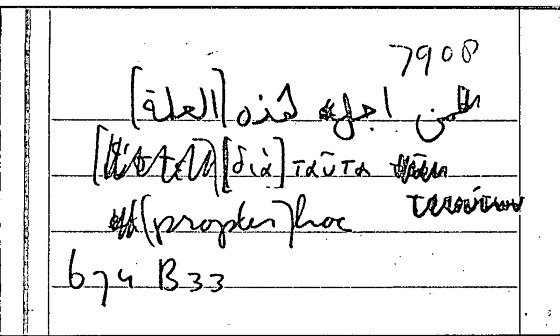 7908
من اجل هذه [العلة]
[διὰ] ταῦτα
[propter] hoc
674 B33